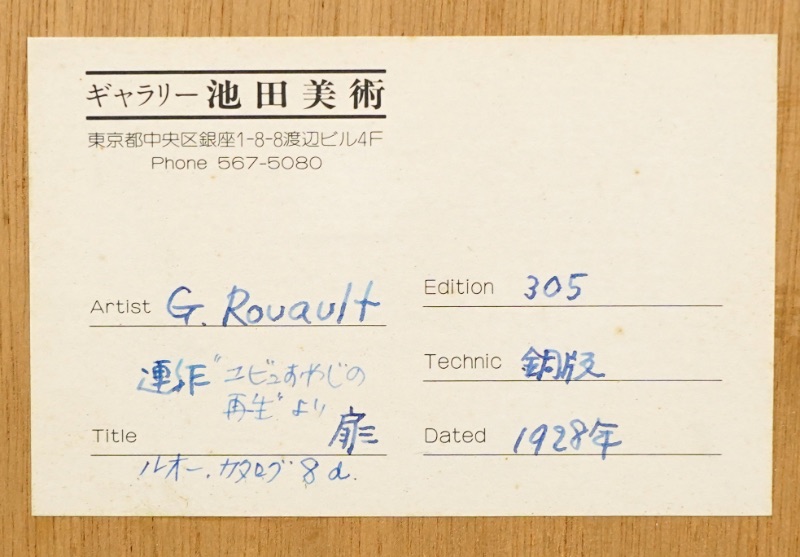 ギャラリー 池田美術
東京都中央区銀座1-8-8渡辺ビル4F
Phone 567-5080
Artist G. Rouault
連作"ユビュおやじの
再生"より
Title 扉
ルオー.カタログ 8 a.
Edition 305
Technic 銅版
Dated 1928年